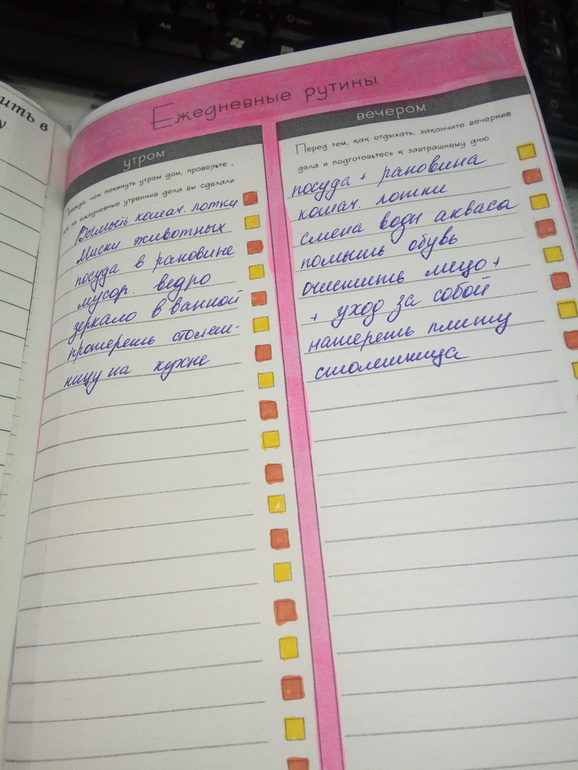 ить в
Ежедневные рутины
утром
чем покинуть утром дом, проверьте,
ежедневные утренние дела вы сделали
Вымыть кошач. лотки
Миски животных
посуда в раковине
мусор. ведро
зеркало в ванной
протереть столеш-
ницу на кухне
вечером
Перед тем, как отдыхать, закончите вечерние
дела и подготовьтесь к завтрашнему дню
посуда + раковина
кошач. лотки
смена воды акваса
помыть обувь
очистить лицо +
+ уход за собой
натереть плиту
столешница